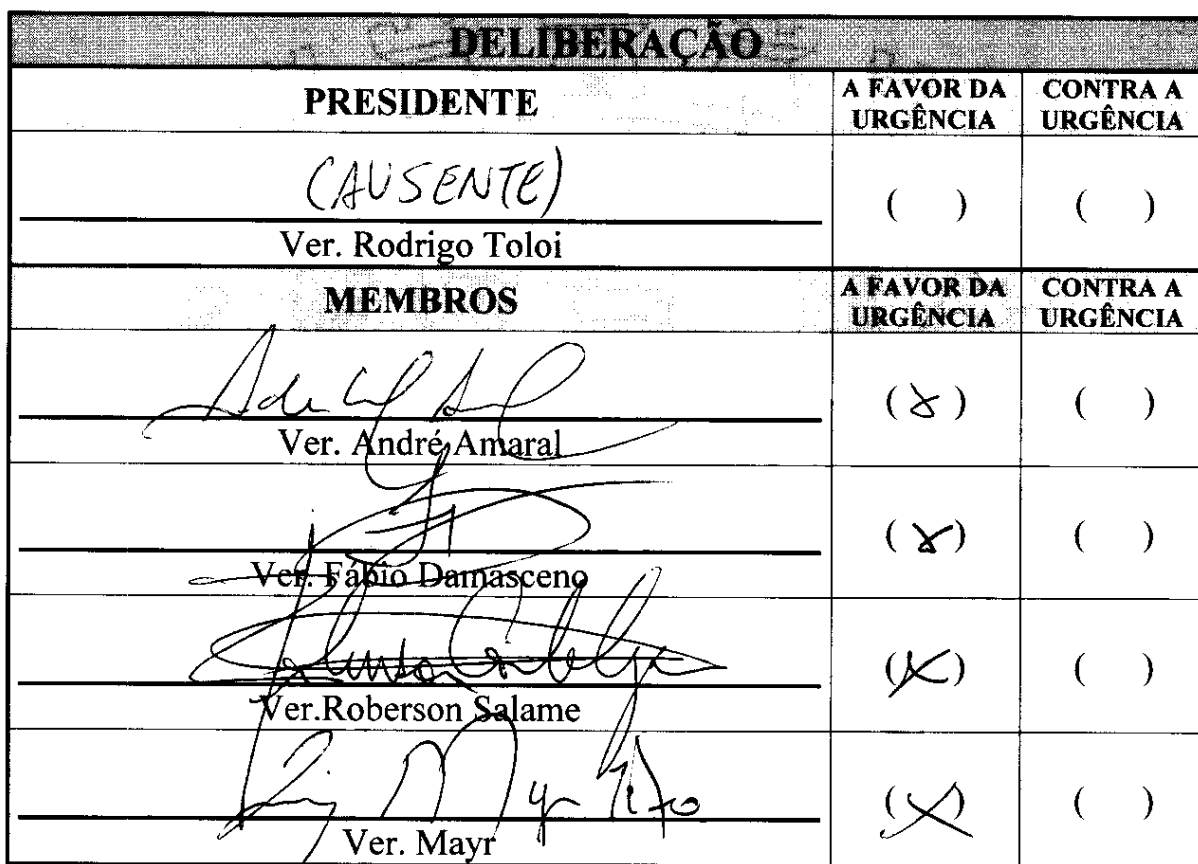 DELIBERAÇÃO
PRESIDENTE
A FAVOR DA URGÊNCIA
CONTRA A URGÊNCIA
(AUSENTE)
( ) ( )
Ver. Rodrigo Toloi
MEMBROS
A FAVOR DA URGÊNCIA
CONTRA A URGÊNCIA
(X) ( )
Ver. André Amaral
(X) ( )
Ver. Fábio Damasceno
(X) ( )
Ver.Roberson Salame
(X) ( )
Ver. Mayr